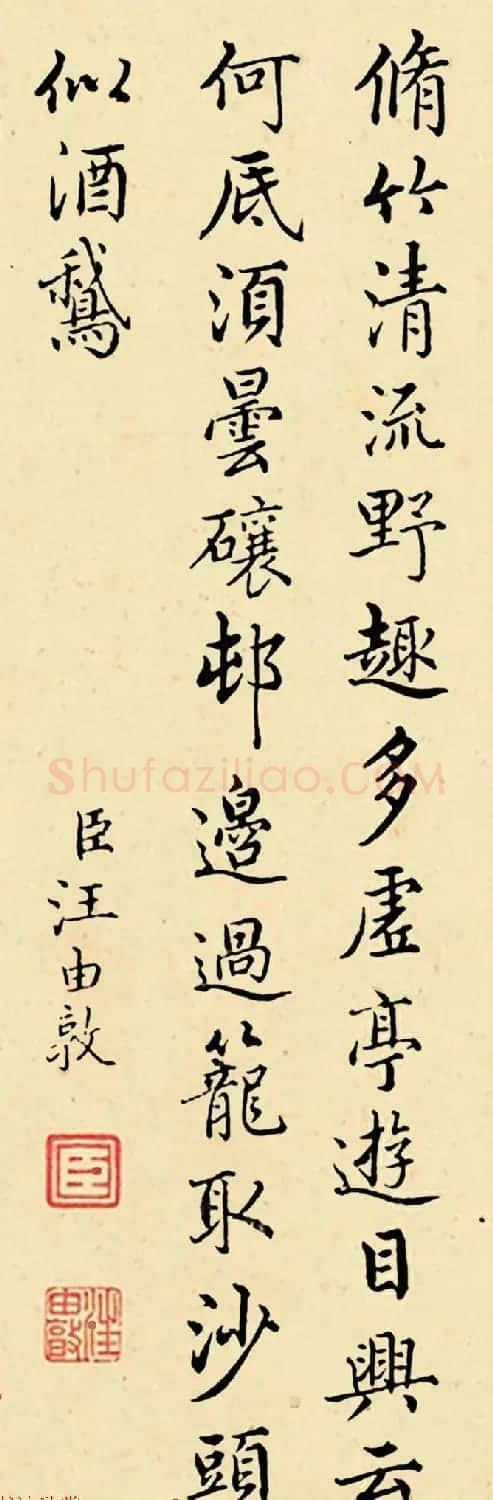 脩竹清流野趣多虛亭遊目興云
何底湏曇邨邊過籠取沙頭
似酒鵞
臣汪由敦
臣
汪由敦
Shufaziliao.COM